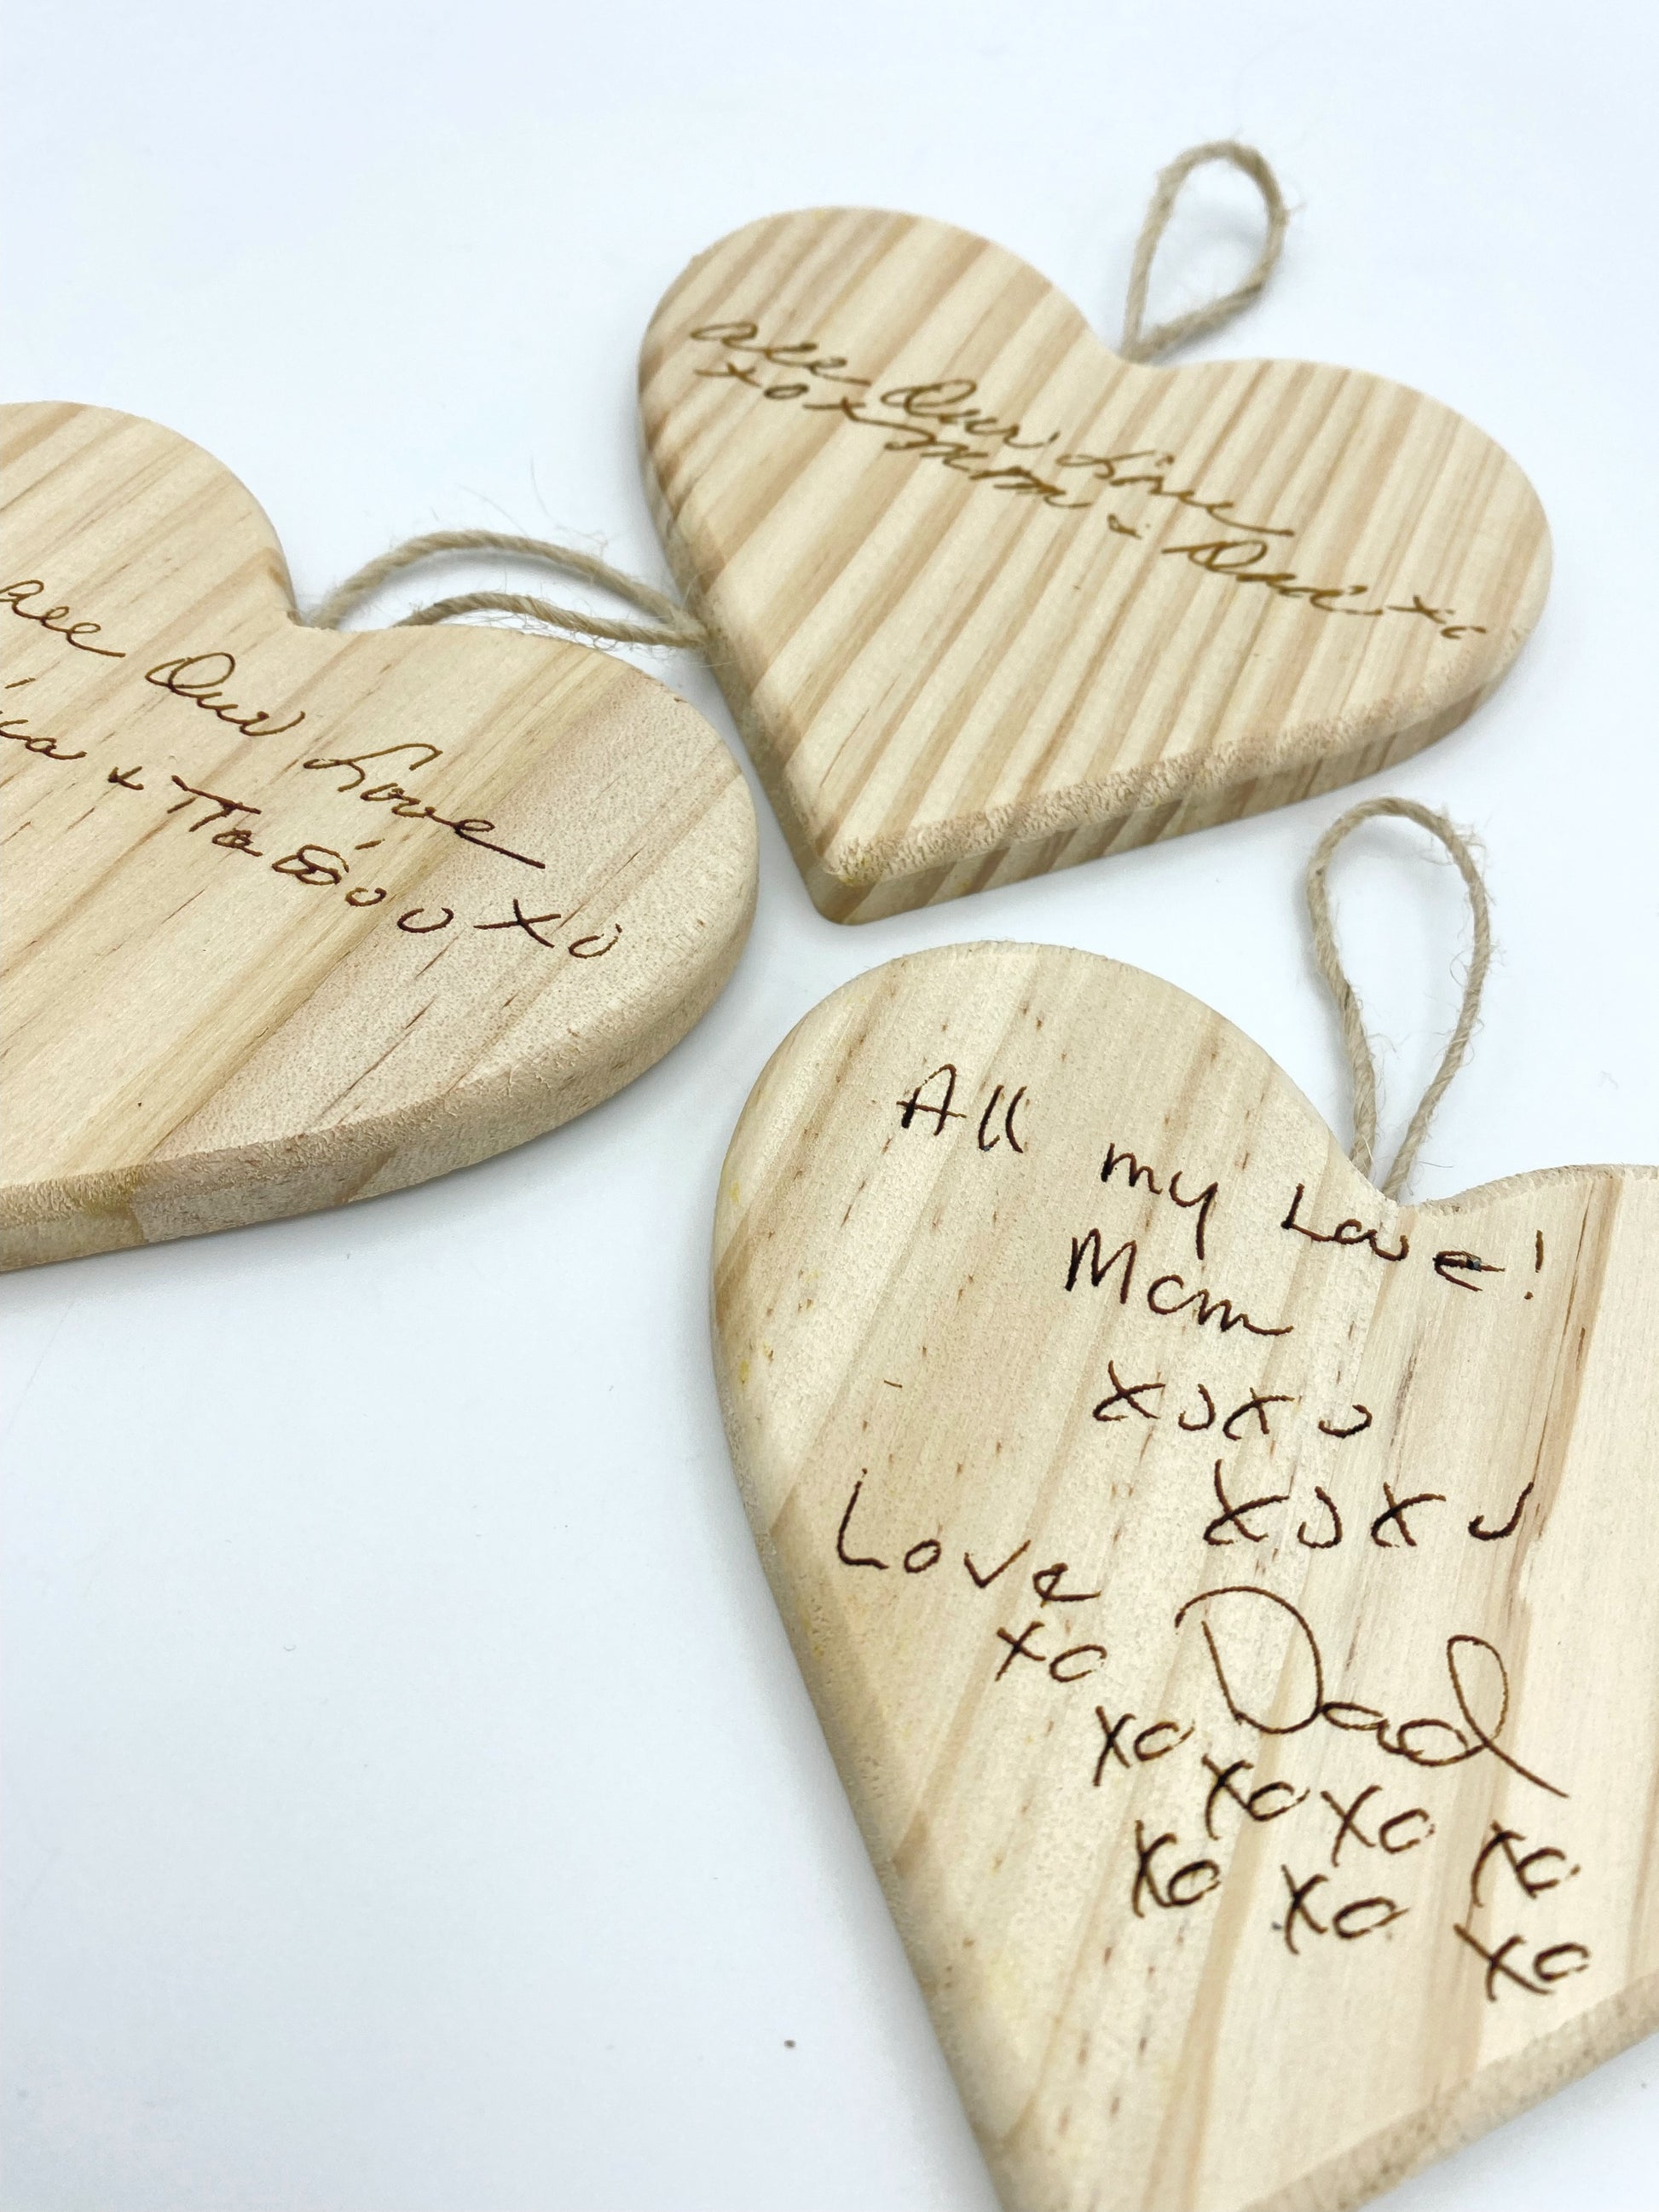 All Our Love
xoxMom + Dad xo
All Our Love
+ xo
All my Love!
Mom
xoxo
xoxo
Love
Dad
xo
xo
xo xo xo
xo xo xo